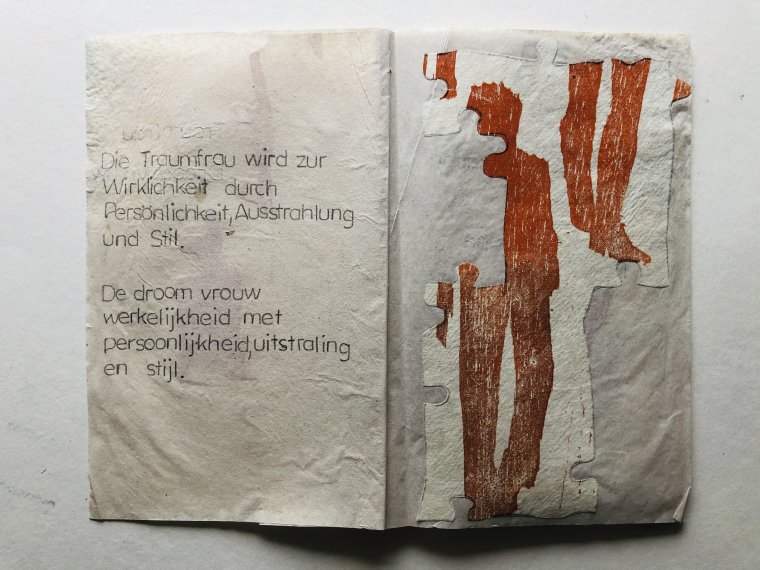 Die Traumfrau wird zur
Wirklichkeit durch
Persönlichkeit, Ausstrahlung
und Stil.
De droom vrouw
werkelijkheid met
persoonlijkheid,uitstraling
en stijl.